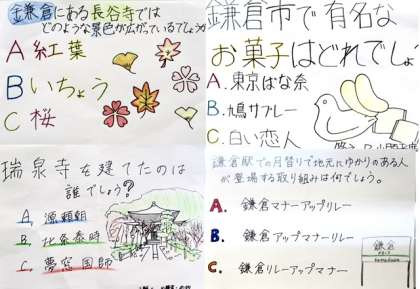 鎌倉にある長谷寺では
どのような景色が広がっているでしょうか
A 紅葉
B いちょう
C 桜
鎌倉市で有名な
お菓子はどれでしょ
A. 東京ばな奈
B. 鳩サブレー
C. 白い恋人
瑞泉寺を建てたのは
誰でしょう?
A. 源頼朝
B. 北条泰時
C. 夢窓国師
鎌倉駅での月替りで地元にゆかりのある人
が登場する取り組みは何でしょう。
A. 鎌倉マナーアップリレー
B. 鎌倉アップマナーリレー
C. 鎌倉リレーアップマナー
鎌倉